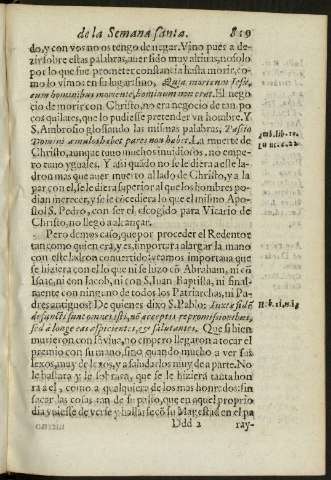 de la Semana santa. 819
do, y con vos no os tengo de negar. Vino pues a de-
zir sobre estas palabras, auer sido muy altiuas, no solo
por lo que fue prometer constancia hasta morir, co-
mo lo vimos en su lugar, sino, Quia morte non Iesu,
cum hominibus moriente, hominum non erat. El nego
cio de morir con Christo, no era negocio de tan po-
cos quilates, que lo pudiesse pretender vn hombre. Y
S. Ambrosio glossando las mismas palabras,
Domini æmulos habet pares non habet. La muerte de
Christo, aunque tuuo muchos inuidiosos, no empe-
ro tuuo yguales. Y assi quādo no se le diera a este la-
dron mas que auer muerto al lado de Christo, y a la
par con el, se le diera superior al que los hombres po-
dian merecer, y se le cōcediera lo que el mismo Apo-
stol S. Pedro, con ser el escogido para Vicario de
Christo, no llegò a alcançar.
Pero demos caso, que por proceder el Redentor
tan como quien era, y es, importara alargar la mano
con este ladron conuertido: veamos importaua que
se hiziera con el lo que ni se hizo cō Abraham, ni cō
Isaac, ni con Iacob, ni con S. Iuan Baptista, ni final-
mente con ninguno de todos los Patriarchas, ni Pa-
dres antiguos? De quienes dixo S. Pablo: Iuxta fidē
defuncti sunt omnes isti, nō acceptis repromissionibus,
sed a longe eas aspicientes, & salutantes. Que si bien
murieron con su, no empero llegaron a tocar el
premio con su mano, sino quando mucho a ver
lexos, muy de lexos, y a saludarlos muy de a parte. No
le bastara y le sobrara, que se le hiziera tanta hon
ra a el, como a qualquiera de los mas honrados: sin
sacar las cosas tan de su passo, que en aquel proprio
dia viniesse de verse y hallarse cō su Magestad en el pa
Ddd 2 ray-
Amb. lib. 10.
in uc. c. 22.
Heb. 11. n. 13